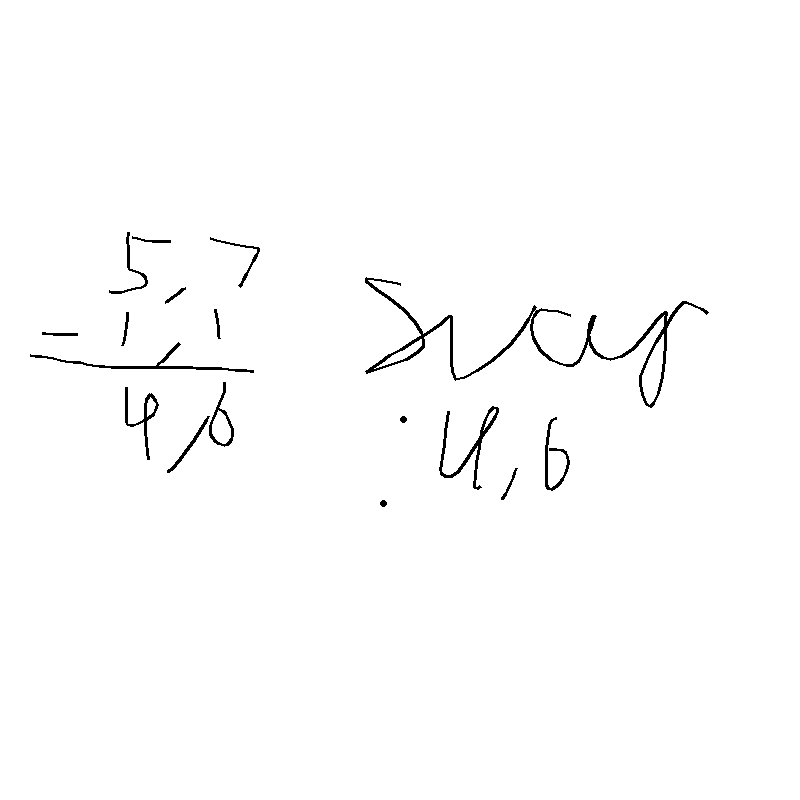 5,7
- 1,1
4,6
Svar
: 4,6